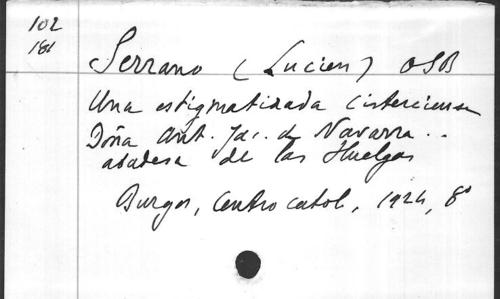 102
181
Serrano (Lucien) OSB
Una estigmatizada cisterciense
Doña Ant. Jac. de Navarra ..
abadesa de las Huelgas
Burgos, Centro catol, 1924, 8°